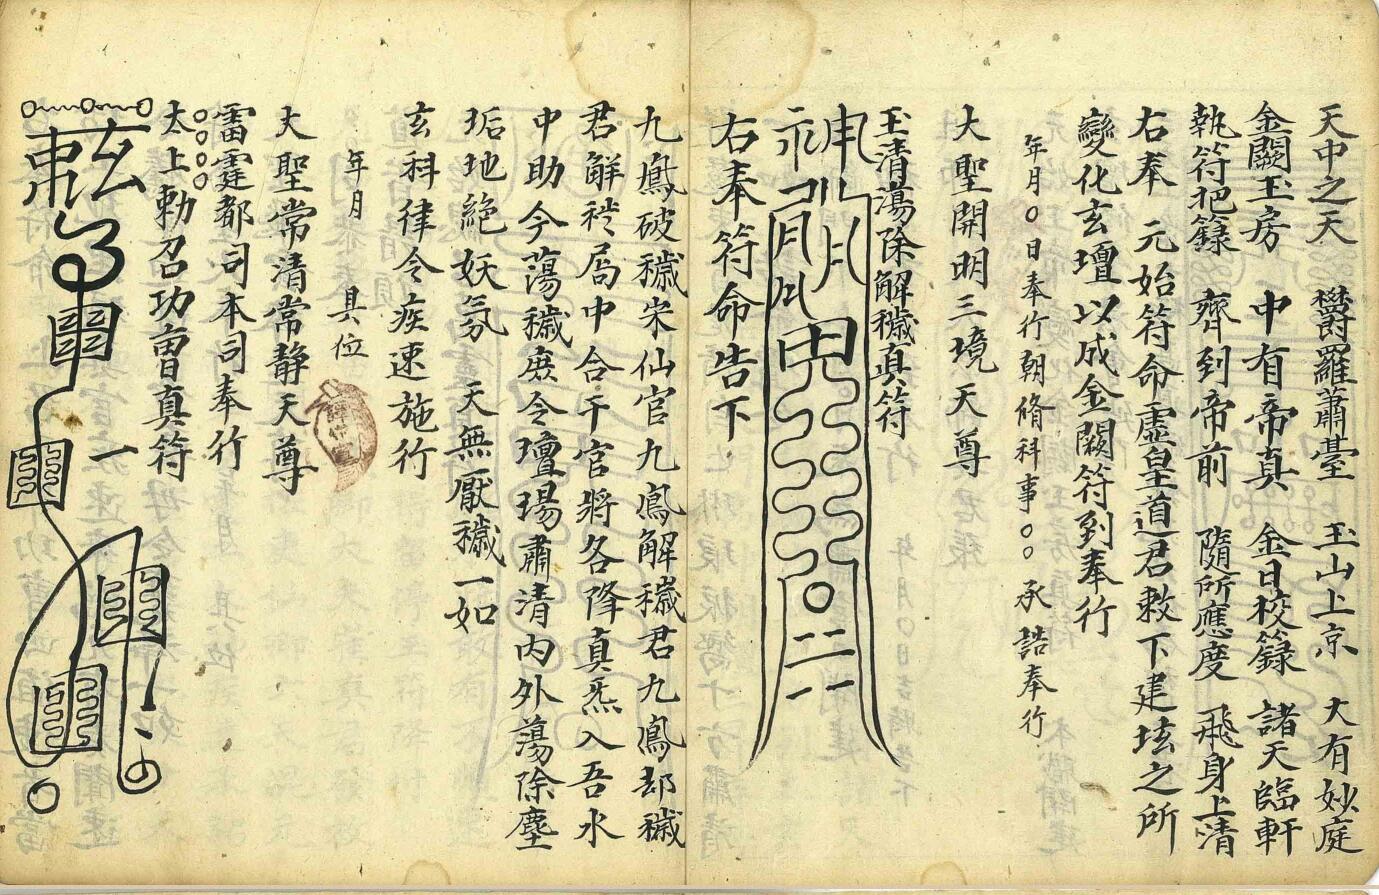 天中之天　欝羅蕭臺　玉山上京　大有妙庭
金闕玉房　中有帝真　金日校籙　諸天臨軒
執符把籙　齊到帝前　隨所應度　飛身上清
右奉　元始符命虛皇道君敕下建坛之所
變化玄壇以成金闕符到奉行
年月〇日奉行朝脩科事〇〇承誥奉行
大聖開明三境天尊
玉清蕩除解穢真符
右奉符命告下
九鳳破穢宋仙官九鳳解穢君九鳳却穢
君解穢局中合干官將各降真炁入吾水
中助今蕩穢庻令壇場肅清内外蕩除塵
垢地絶妖氛　天無厭穢一如
玄科律令疾速施行
年月　具位
大聖常清常静天尊
雷霆都司本司奉行
太上勅召功曹真符